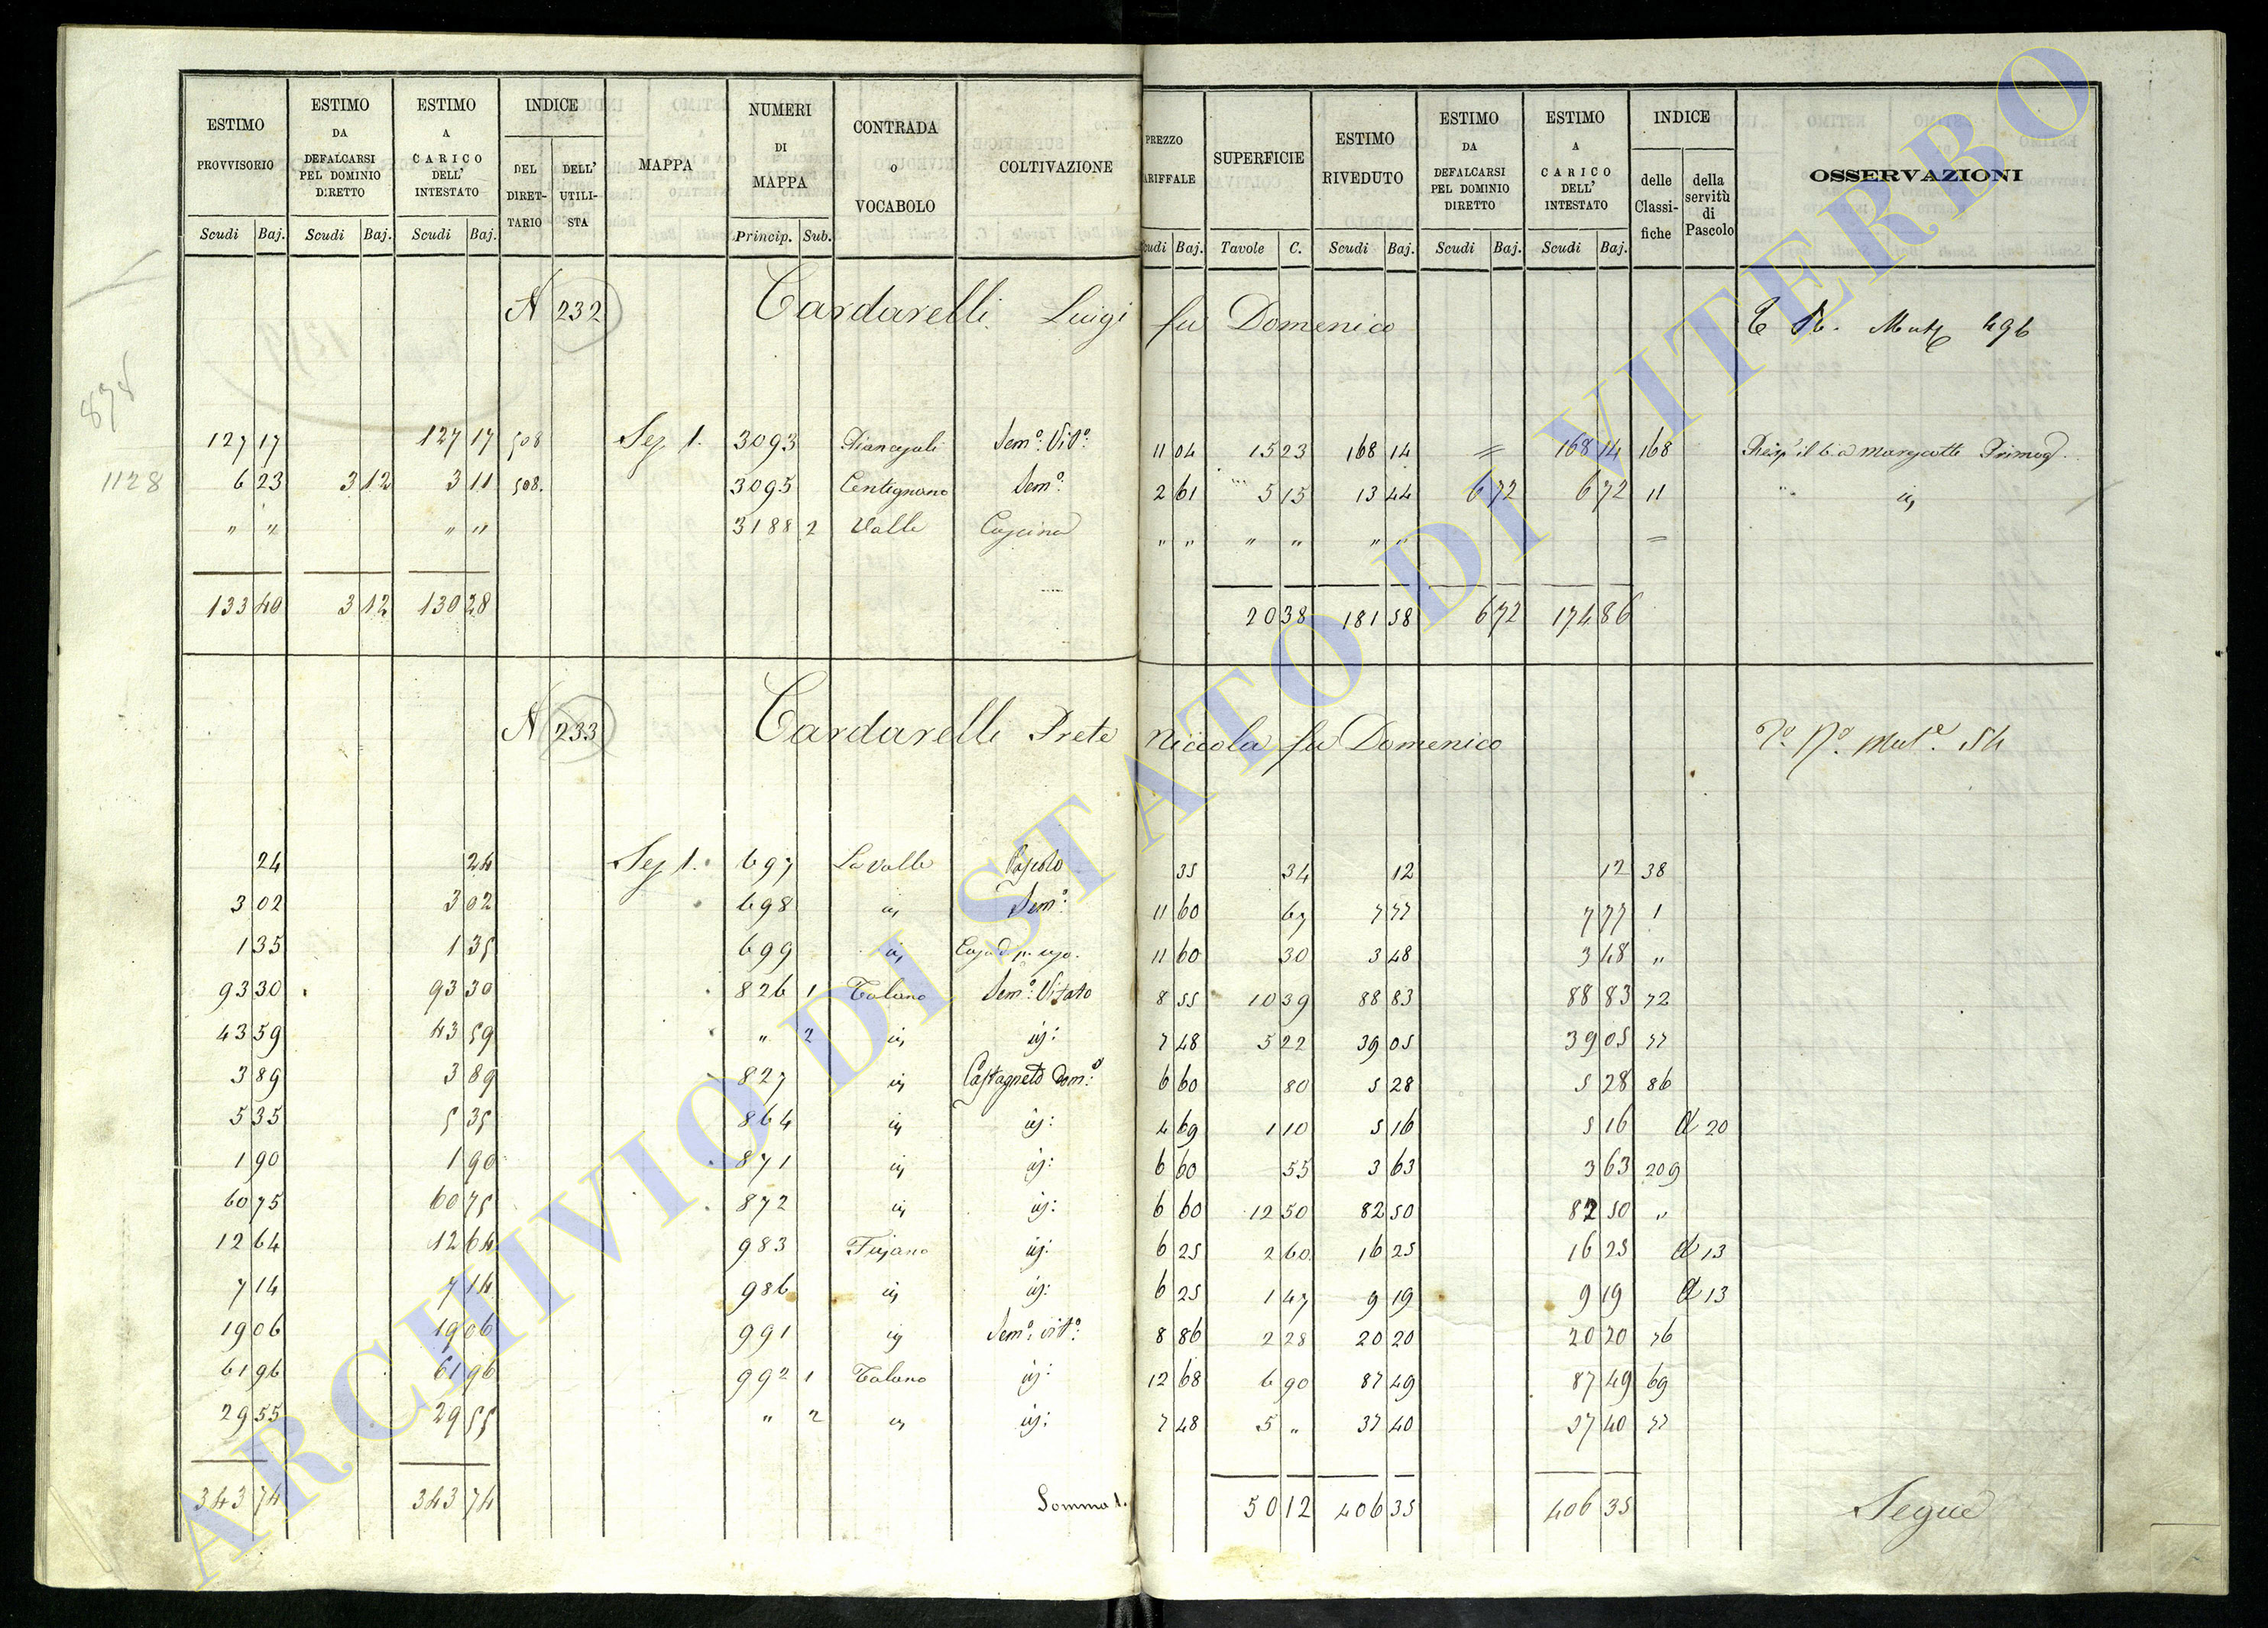 ESTIMO PROVVISORIO | ESTIMO DA DEFALCARSI PEL DOMINIO DIRETTO | ESTIMO A CARICO DELL' INTESTATO | INDICE DEL DIRETTARIO | DELL' UTILISTA | MAPPA | NUMERI DI MAPPA | CONTRADA O VOCABOLO | COLTIVAZIONE | PREZZO ARIFFALE | SUPERFICIE | ESTIMO RIVEDUTO | ESTIMO DA DEFALCARSI PEL DOMINIO DIRETTO | ESTIMO A CARICO DELL' INTESTATO | INDICE delle Classifiche | della servitù di Pascolo | OSSERVAZIONI
Scudi Baj. | Scudi Baj. | Scudi Baj. | Princip. Sub. | udi Baj. | Tavole C. | Scudi Baj. | Scudi Baj. | Scudi Baj.
N 232 Cardarelli Luigi fu Domenico 496
878
127 17 127 17 508 Sez 1. 3093 Semo: Vito: 11 04 15 23 168 14 = 168 14 168
1128 6 23 3 12 3 11 508. 3095 Centignano Semo: 2 61 " 5 15 13 44 6 72 6 72 11 " id
" " " " 3188 2 Valle Cascina " " " " " " =
133 40 3 12 130 28 20 38 181 58 6 72 174 86
N 233 Cardarelli Prete Niccola fu Domenico 54
24 24 Sez 1. 697 La Valle Pascolo 35 34 12 12 38
3 02 3 02 698 id Semo: 11 60 67 7 77 7 77 1
1 35 1 35 699 id Casa d. p. uso. 11 60 30 3 48 3 48 "
93 30 93 30 826 1 Talano Semo: Vitato 8 55 10 39 88 83 88 83 72
43 59 43 59 " 2 id id: 7 48 5 22 39 05 39 05 77
3 89 3 89 827 id Castagneto Dom:o 6 60 80 5 28 5 28 86
5 35 5 35 864 id id: 4 69 1 10 5 16 5 16 d 20
1 90 1 90 871 id id: 6 60 55 3 63 3 63 209
60 75 60 75 872 id id: 6 60 12 50 82 50 82 50 "
12 64 12 64 983 id: 6 25 2 60 16 25 16 25 d 13
7 14 7 14 986 id id: 6 25 1 47 9 19 9 19 d 13
19 06 19 06 991 id Semo: vito: 8 86 2 28 20 20 20 20 76
61 96 61 96 992 1 Talano id: 12 68 6 90 87 49 87 49 69
29 55 29 55 " 2 id id: 7 48 5 " 37 40 37 40 77
343 74 343 74 Somma 1. 50 12 406 35 406 35 Segue
ARCHIVIO DI STATO DI VITERBO